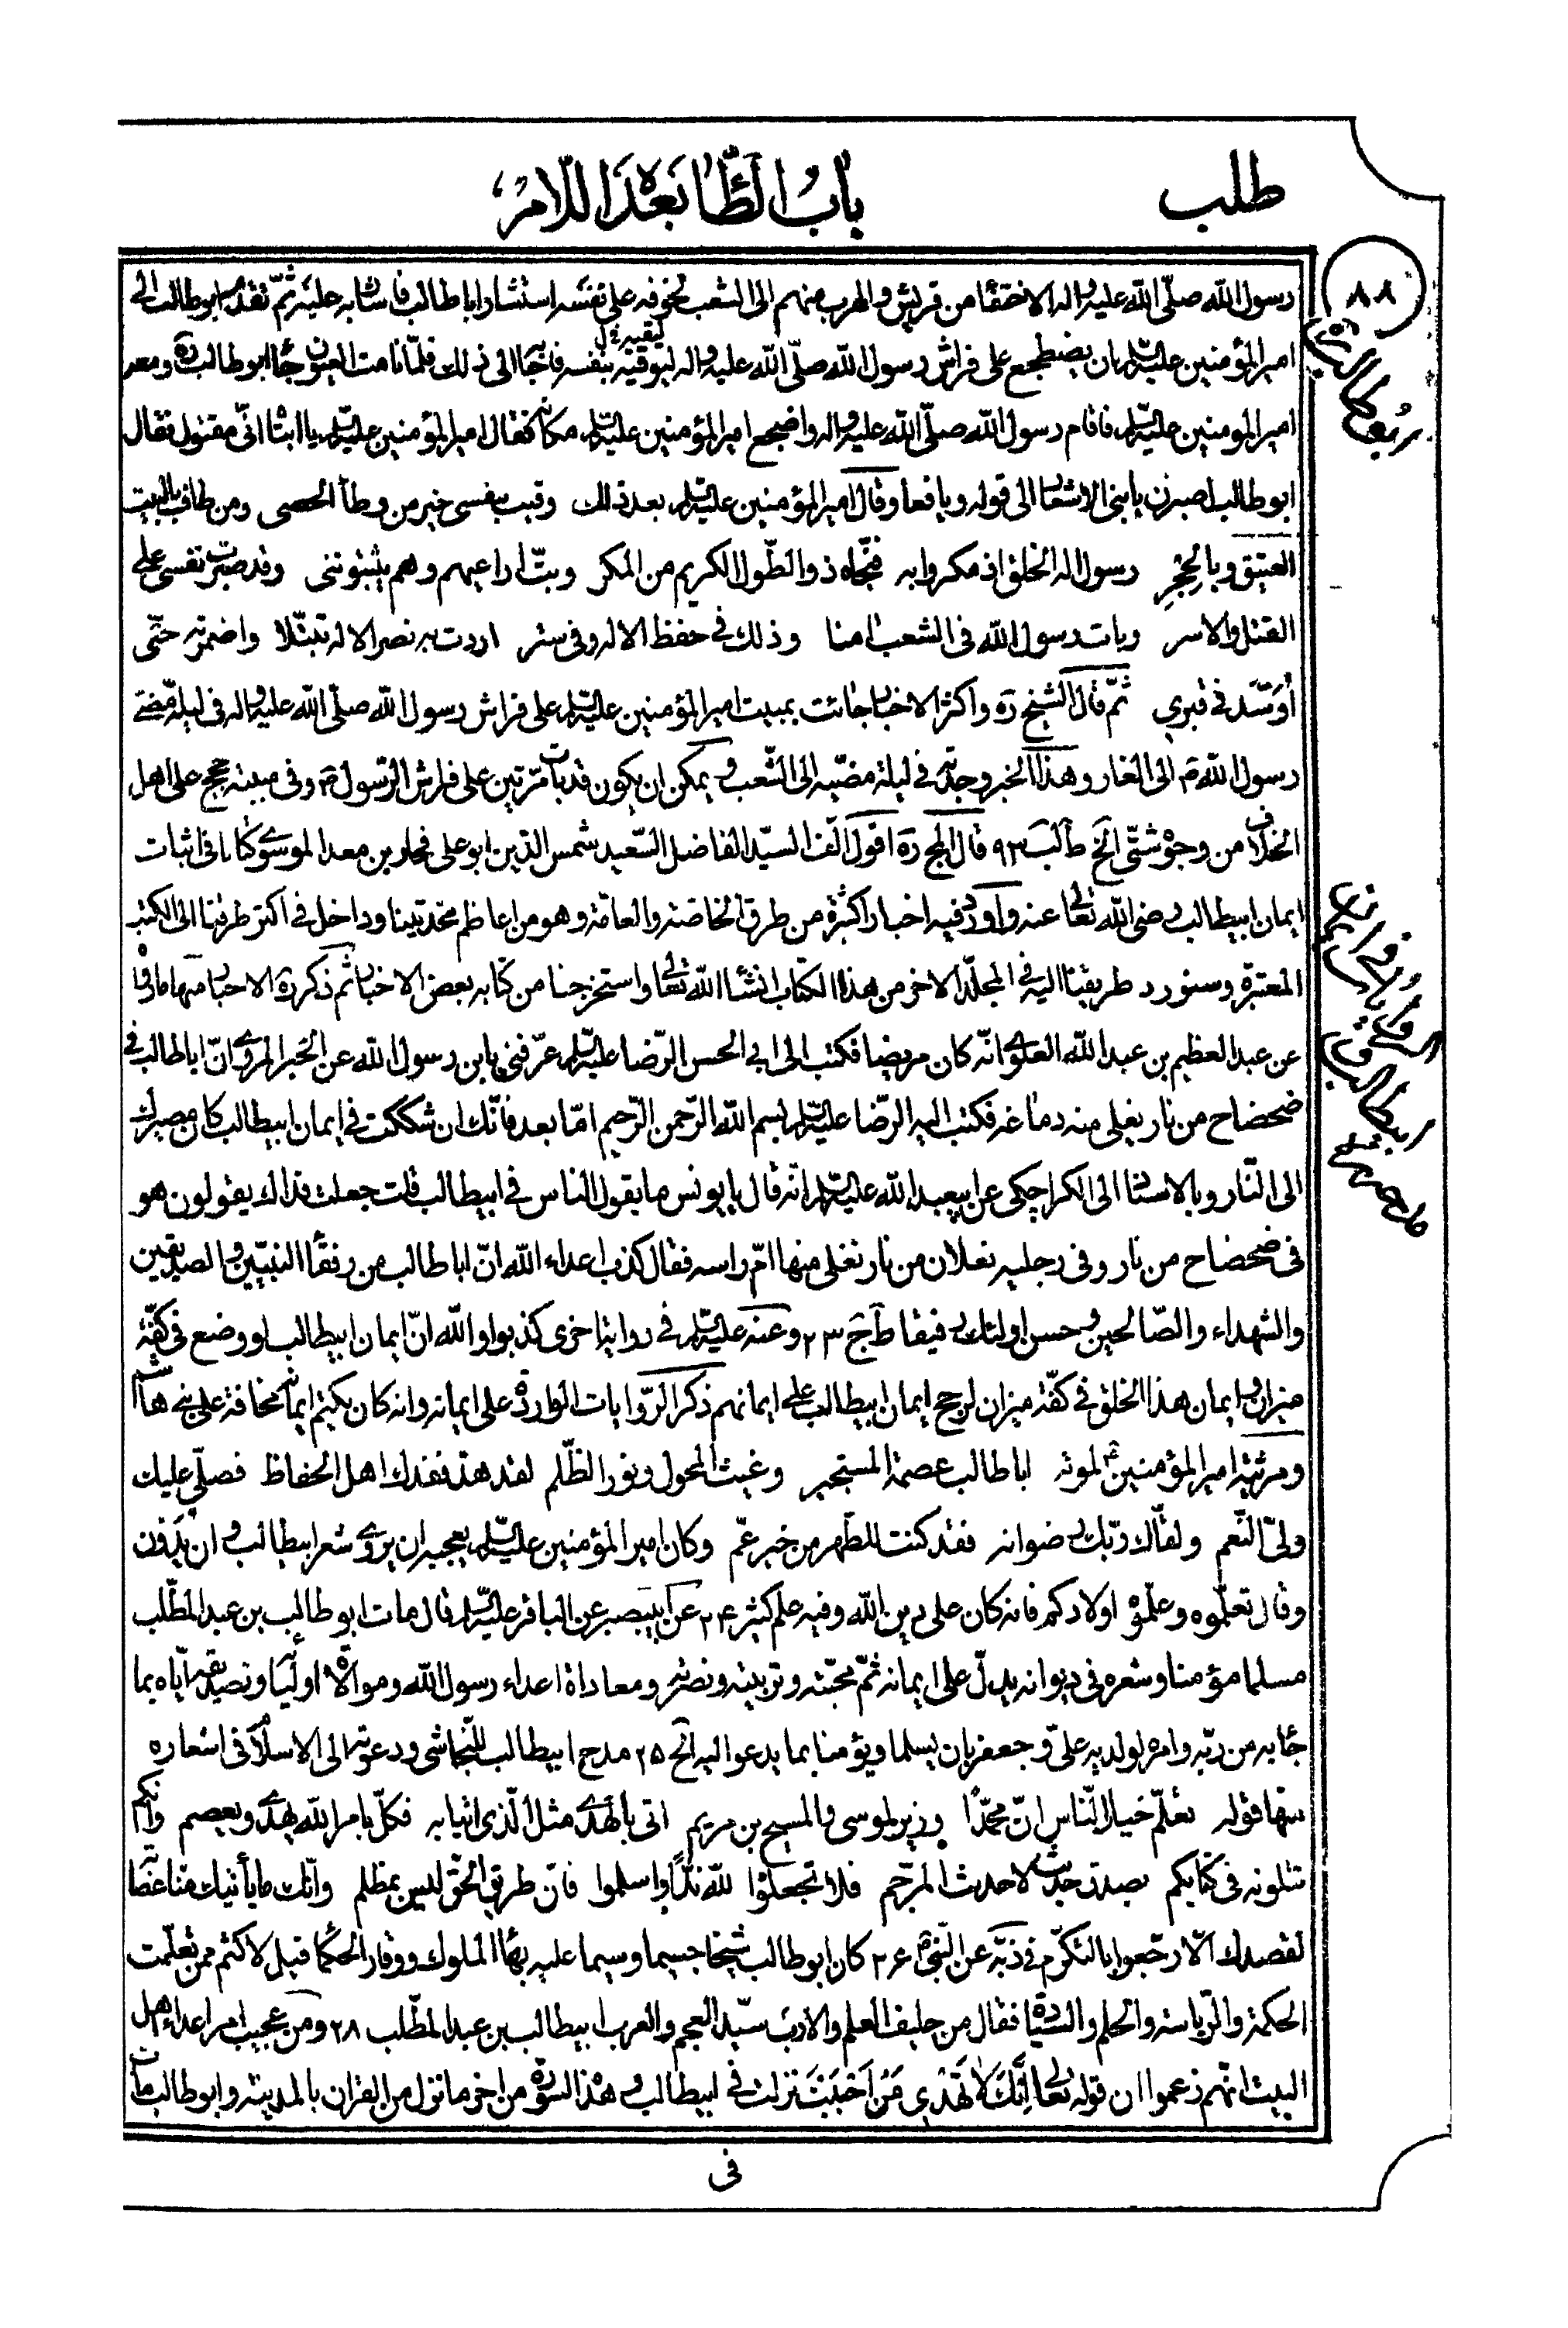 طلب
باب الطاء بعده اللام
٨٨
رسول الله صلّى الله عليه واله الاختفاء من قريش والهرب منهم الى الشعب لخوفه على نفسه استشار اباطالب فاشار به عليه ثمّ تقدّم ابوطالب الى
امير المؤمنين عليه السلم بان يضطجع على فراش رسول الله صلّى الله عليه واله ليوقيه بنفسه فاجابه الى ذلك فلمّا نامت العيون جاء ابوطالب ره ومعه
امير المومنين عليه السلم فاقام رسول الله صلّى الله عليه واله واضجع امير المؤمنين عليه السلم مكانه فقال امير المؤمنين عليه السلم يا ابتاه انّى مقتول فقال
ابوطالب اصبرن يابنى الاشعار الى قوله ويافعا وقال امير المؤمنين عليه السلم بعد ذلك وقيت بنفسى خير من وطأ الحصى ومن طاف بالبيت
العتيق وبالحِجْرِ رسول اله الخلق اذ مكروا به فنجّاه ذوالطّول الكريم من المكر وبتّ اراعيهم وهم يثبتوننى وقد صبرت نفسى على
القتل والاسر وبات رسول الله فى الشعب امنا وذلك فى حفظ الاله وفى ستر اردت به نصر الاله تبتّلا واضمرته حتّى
أُوَسَّد فى قبري ثمّ قال الشيخ ره واكثر الاخبار جائت بمبيت امير المؤمنين عليه السلم على فراش رسول الله صلّى الله عليه واله فى ليلة مضى
رسول الله ص الى الغار وهذا الخبر وجدته فى ليلة مضيّه الى الشّعب ويمكن ان يكون قد بات مرّتين على فراش الرّسول ص وفى مبيته حجج على اهل
الخلاف من وجوه شتّى الخ طا لب ٩٣ قال المج ره اقول الّف السيّد الفاضل السّعيد شمس الدّين ابوعلى فخار بن معد الموسوى كتابا فى اثبات
ايمان ابيطالب رضى الله تعالى عنه واورد فيه اخبارا كثيرة من طرق الخاصّه والعامّة وهو من اعاظم محدّثينا وداخل فى اكثر طرقنا الى الكتب
المعتبرة وسنورد طريقنا اليه فى المجلّد الاخر من هذا الكتاب انشاء الله تعالى واستخرجنا من كتابه بعض الاخبار ثمّ ذكر ره الاخبار منها مارواه
عن عبد العظيم بن عبد الله العلوى انّه كان مريضا فكتب الى ابى الحسن الرّضا عليه السلم عرّفنى يابن رسول الله عن الخبر المروى انّ اباطالب فى
ضحضاح من نار يغلى منه دماغه فكتب اليه الرّضا عليه السلم بسم الله الرّحمن الرّحيم امّا بعد فانّك ان شككت فى ايمان ابيطالب كان مصيرك
الى النّار وبالاسناد الى الكراجكى عن ابيعبد الله عليه السلم انّه قال يا يونس ما يقول الناس فى ابيطالب قلت جعلت فداك يقولون هو
فى ضحضاح من نار وفى رجليه نعلان من نار تغلى منها امّ راسه فقال كذب اعداء الله انّ اباطالب من رفقاء النبيّين والصدّيقين
والشهداء والصّالحين وحسن اولئك رفيقا طا جج ٢٣ وعنه عليه السلم فى رواية اخرى كذبوا والله انّ ايمان ابيطالب لو وضع فى كفّة
ميزان وايمان هذا الخلق فى كفّة ميزان لرجح ايمان ابيطالب على ايمانهم ذكر الرّوايات الواردة على ايمانه وانه كان يكتم ايمانه مخافة على بنى هاشم
ومرثية امير المؤمنين ع لموته اباطالب عصمة المستجير وغيث المحول ونور الظّلم لقد هدّ فقدك اهل الحفاظ فصلّى عليك
ولىّ النّعم ولقّاك ربّك رضوانه فقد كنت للطّهر من خير عمّ وكان امير المؤمنين عليه السلم يعجبه ان يروى شعر ابيطالب وان يدوّن
وقال تعلّموه وعلّموه اولادكم فانه كان على دين الله وفيه علم كثير ٢۴ عن ابيبصير عن الباقر عليه السلم قال مات ابوطالب بن عبد المطّلب
مسلما مؤمنا وشعره فى ديوانه يدلّ على ايمانه ثمّ محبّته وتربيته ونصرته ومعاداة اعداء رسول الله وموالاة اوليائه وتصديقه ايّاه بما
جاء به من ربّه وامره لولديه علىّ وجعفر بان يسلما ويؤمنا بما يدعو اليه الخ ٢۵ مدح ابيطالب للنّجاشى ودعوته الى الاسلام فى اشعاره
منها قوله تعلّم خيار النّاس انّ محمّدًا وزير لموسى والمسيح بن مريم اتى بالهدى مثل الّذى اتيا به فكلّ بامر الله يهدى ويعصم وانّكم
تتلونه فى كتابكم بصدق حديث لا حديث المرجّم فلا تجعلوا لله ندّا واسلموا فانّ طريق الحق ليس بمظلم وانّك ما يأتيك منّا عصابة
لقصدك الّا ارجعوا بالتكرّم فى ذبّه عن النّبى ص ٢۶ كان ابوطالب شيخا جسيما وسيما عليه بهاء الملوك ووقار الحكماء قيل لاكثم ممن تعلّمت
الحكمة والرّياسة والحلم والسّيادة فقال من حليف العلم والادب سيّد العجم والعرب ابيطالب بن عبد المطّلب ٢٨ ومن عجيب امر اعداء اهل
البيت انّهم زعموا ان قوله تعالى اِنَّكَ لا تَهْدى مَنْ اَحْبَبْتَ نزلت فى ابيطالب وهذه السّورة من اخر ما نزل من القران بالمدينة وابوطالب مات
فى